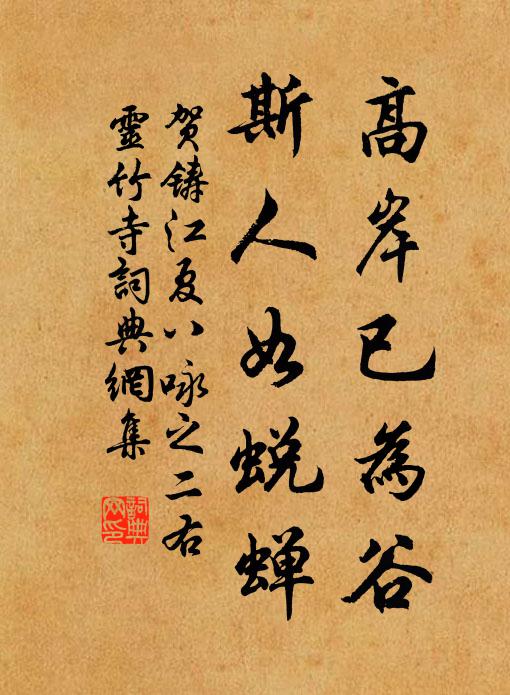 高岸已為谷
斯人如蜕蝉
贺鑄江夏八咏之二右
靈竹寺詞典網集
詞典网印